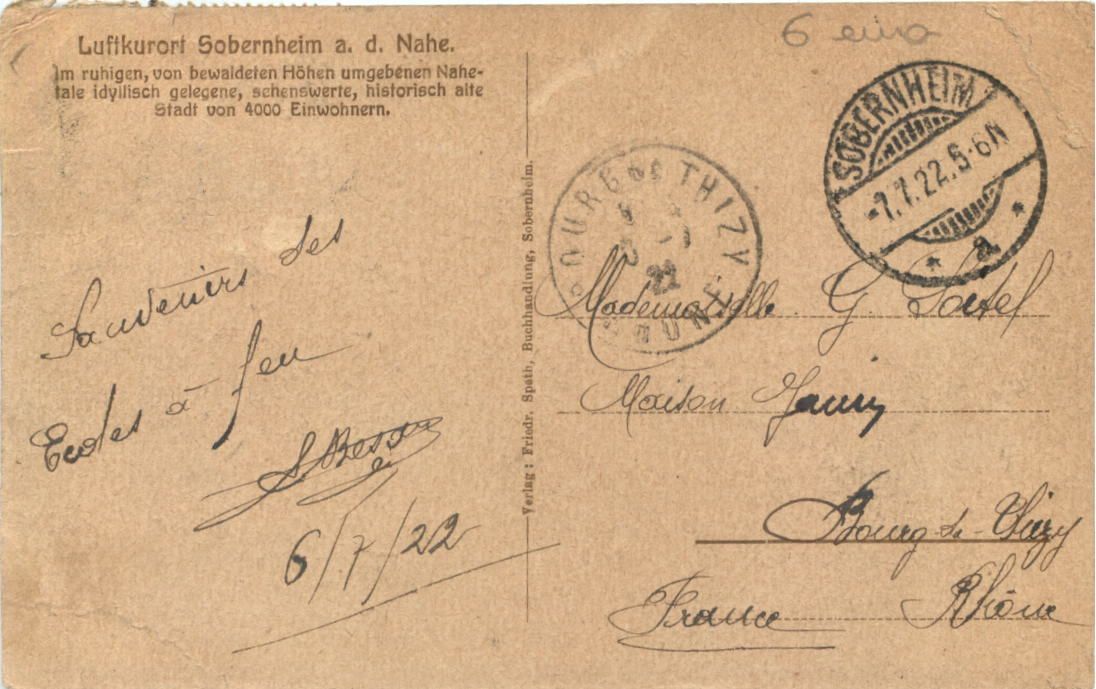 Luftkurort Sobernheim a. d. Nahe.
Im ruhigen, von bewaldeten Höhen umgebenen Nahe-
tale idyllisch gelegene, sehenswerte, historisch alte
Stadt von 4000 Einwohnern.
6 euro
SOBERNHEIM
-7.7.22.5-6N
* a *
BOURG DE THIZY
RHONE
22
Verlag: Friedr. Spath, Buchhandlung, Sobernheim.
Souvenirs des
Ecoles à feu
6/7/22
Mademoiselle G.
Maison
Bourg-de-Thizy
France Rhône